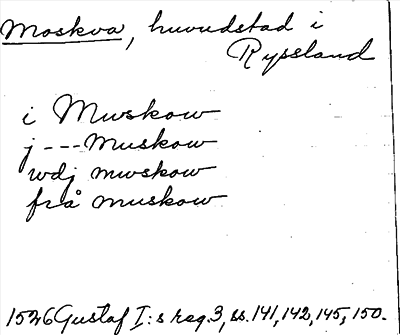 Moskva, huvudstad i
Ryssland
i Muskow
j --- Muskow
wdj muskow
frå muskow
1526 Gustaf I:s reg. 3, ss. 141, 142, 145, 150.